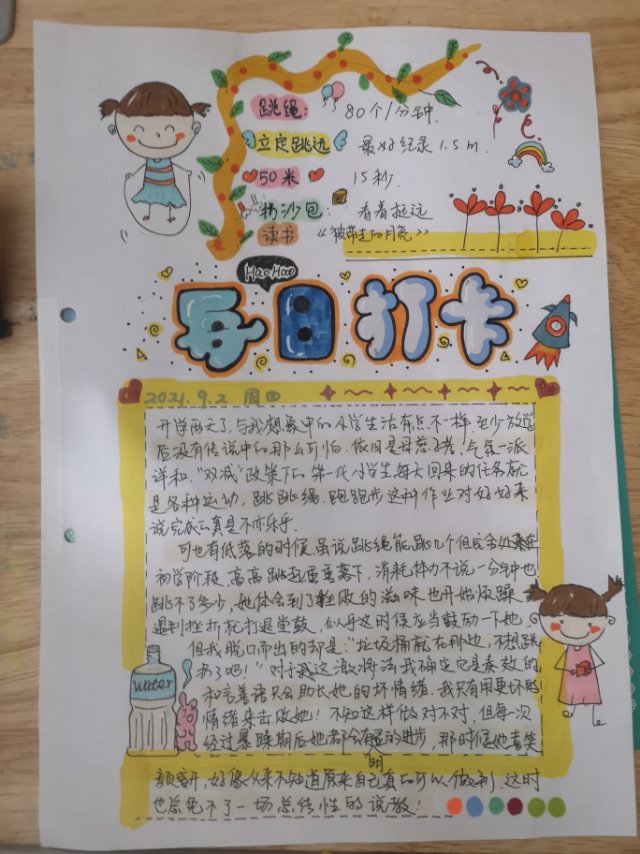 跳绳: 80个/分钟.
立定跳远 最好纪录1.5m.
50米 15秒.
扔沙包: 看着挺远
读书 《被带走的月亮》
HaoHao
每日打卡
2021.9.2 周四
开学两天了,与我想象中的小学生活有点不一样,至少放学
后没有传说中的那么可怕.依旧是母慈子孝,气氛一派
祥和."双减"政策下的第一代小学生每天回来的任务就
是各种运动,跳跳绳.跑跑步这种作业对好好来
说完成 真是不亦乐乎.
可也有低落的时候,虽说跳绳能跳几个但完全处在
初学阶段,高高跳起重重落下,消耗体力不说一分钟也
跳不了多少,她体会到了 败的滋味也开始烦躁
遇到挫折就打退堂鼓,似乎这时候应当鼓励一下她.
但我脱口而出的却是:"垃圾桶就在那边,不想跳
扔了吧!"对于 这激将法我确定它是奏效的
和言善语只会助长她的坏情绪.我只有用更坏的
情绪来击败她!不知这样做对不对,但每一次
经过暴躁期后她都会有 明显的进步,那时候她喜笑
颜开,好像从来不知道原来自己真的可以做到.这时
也总免不了一场总结性的说教!
Water